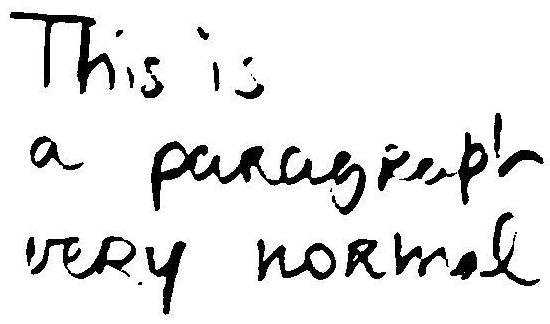 This is
a paragraph
very normal